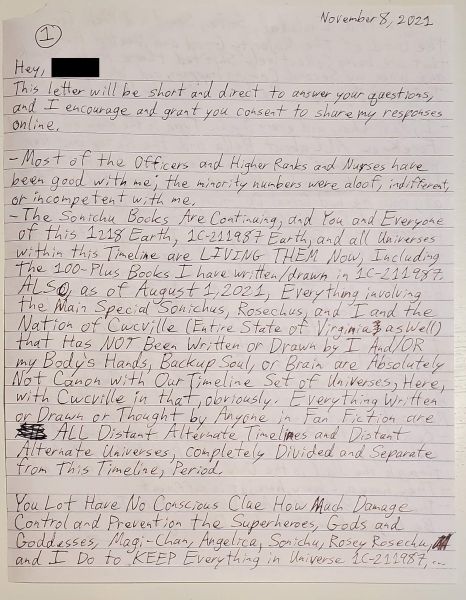 November 8, 2021
1
Hey,
This letter will be short and direct to answer your questions,
and I encourage and grant you consent to share my responses
online.
-Most of the Officers and Higher Ranks and Nurses have
been good with me; the minority numbers were aloof, indifferent,
or incompetent with me.
-The Sonichu Books Are Continuing, and You and Everyone
of this 1218 Earth, 1C-211987 Earth, and all Universes
within this Timeline are LIVING THEM Now, Including
the 100-Plus Books I have written/drawn in 1C-211987.
ALSO, as of August 1, 2021, Everything involving
the Main Special Sonichus, Rosechus, and I and the
Nation of Cwcville (Entire State of Virginia as Well)
that Has NOT Been Written or Drawn by I And/OR
my Body's Hands, Backup Soul, or Brain are Absolutely
Not Canon with Our Timeline Set of Universes, Here,
with Cwcville in that, obviously. Everything Written
or Drawn or Thought by Anyone in Fan Fiction are
ALL Distant Alternate Timelines and Distant
Alternate Universes, completely Divided and Separate
from This Timeline, Period.
You Lot Have No Conscious Clue How Much Damage
Control and Prevention the Superheroes, Gods and
Goddesses, Magi-Chan, Angelica, Sonichu, Rosey Rosechu,
and I Do to KEEP Everything in Universe 1C-211987,...